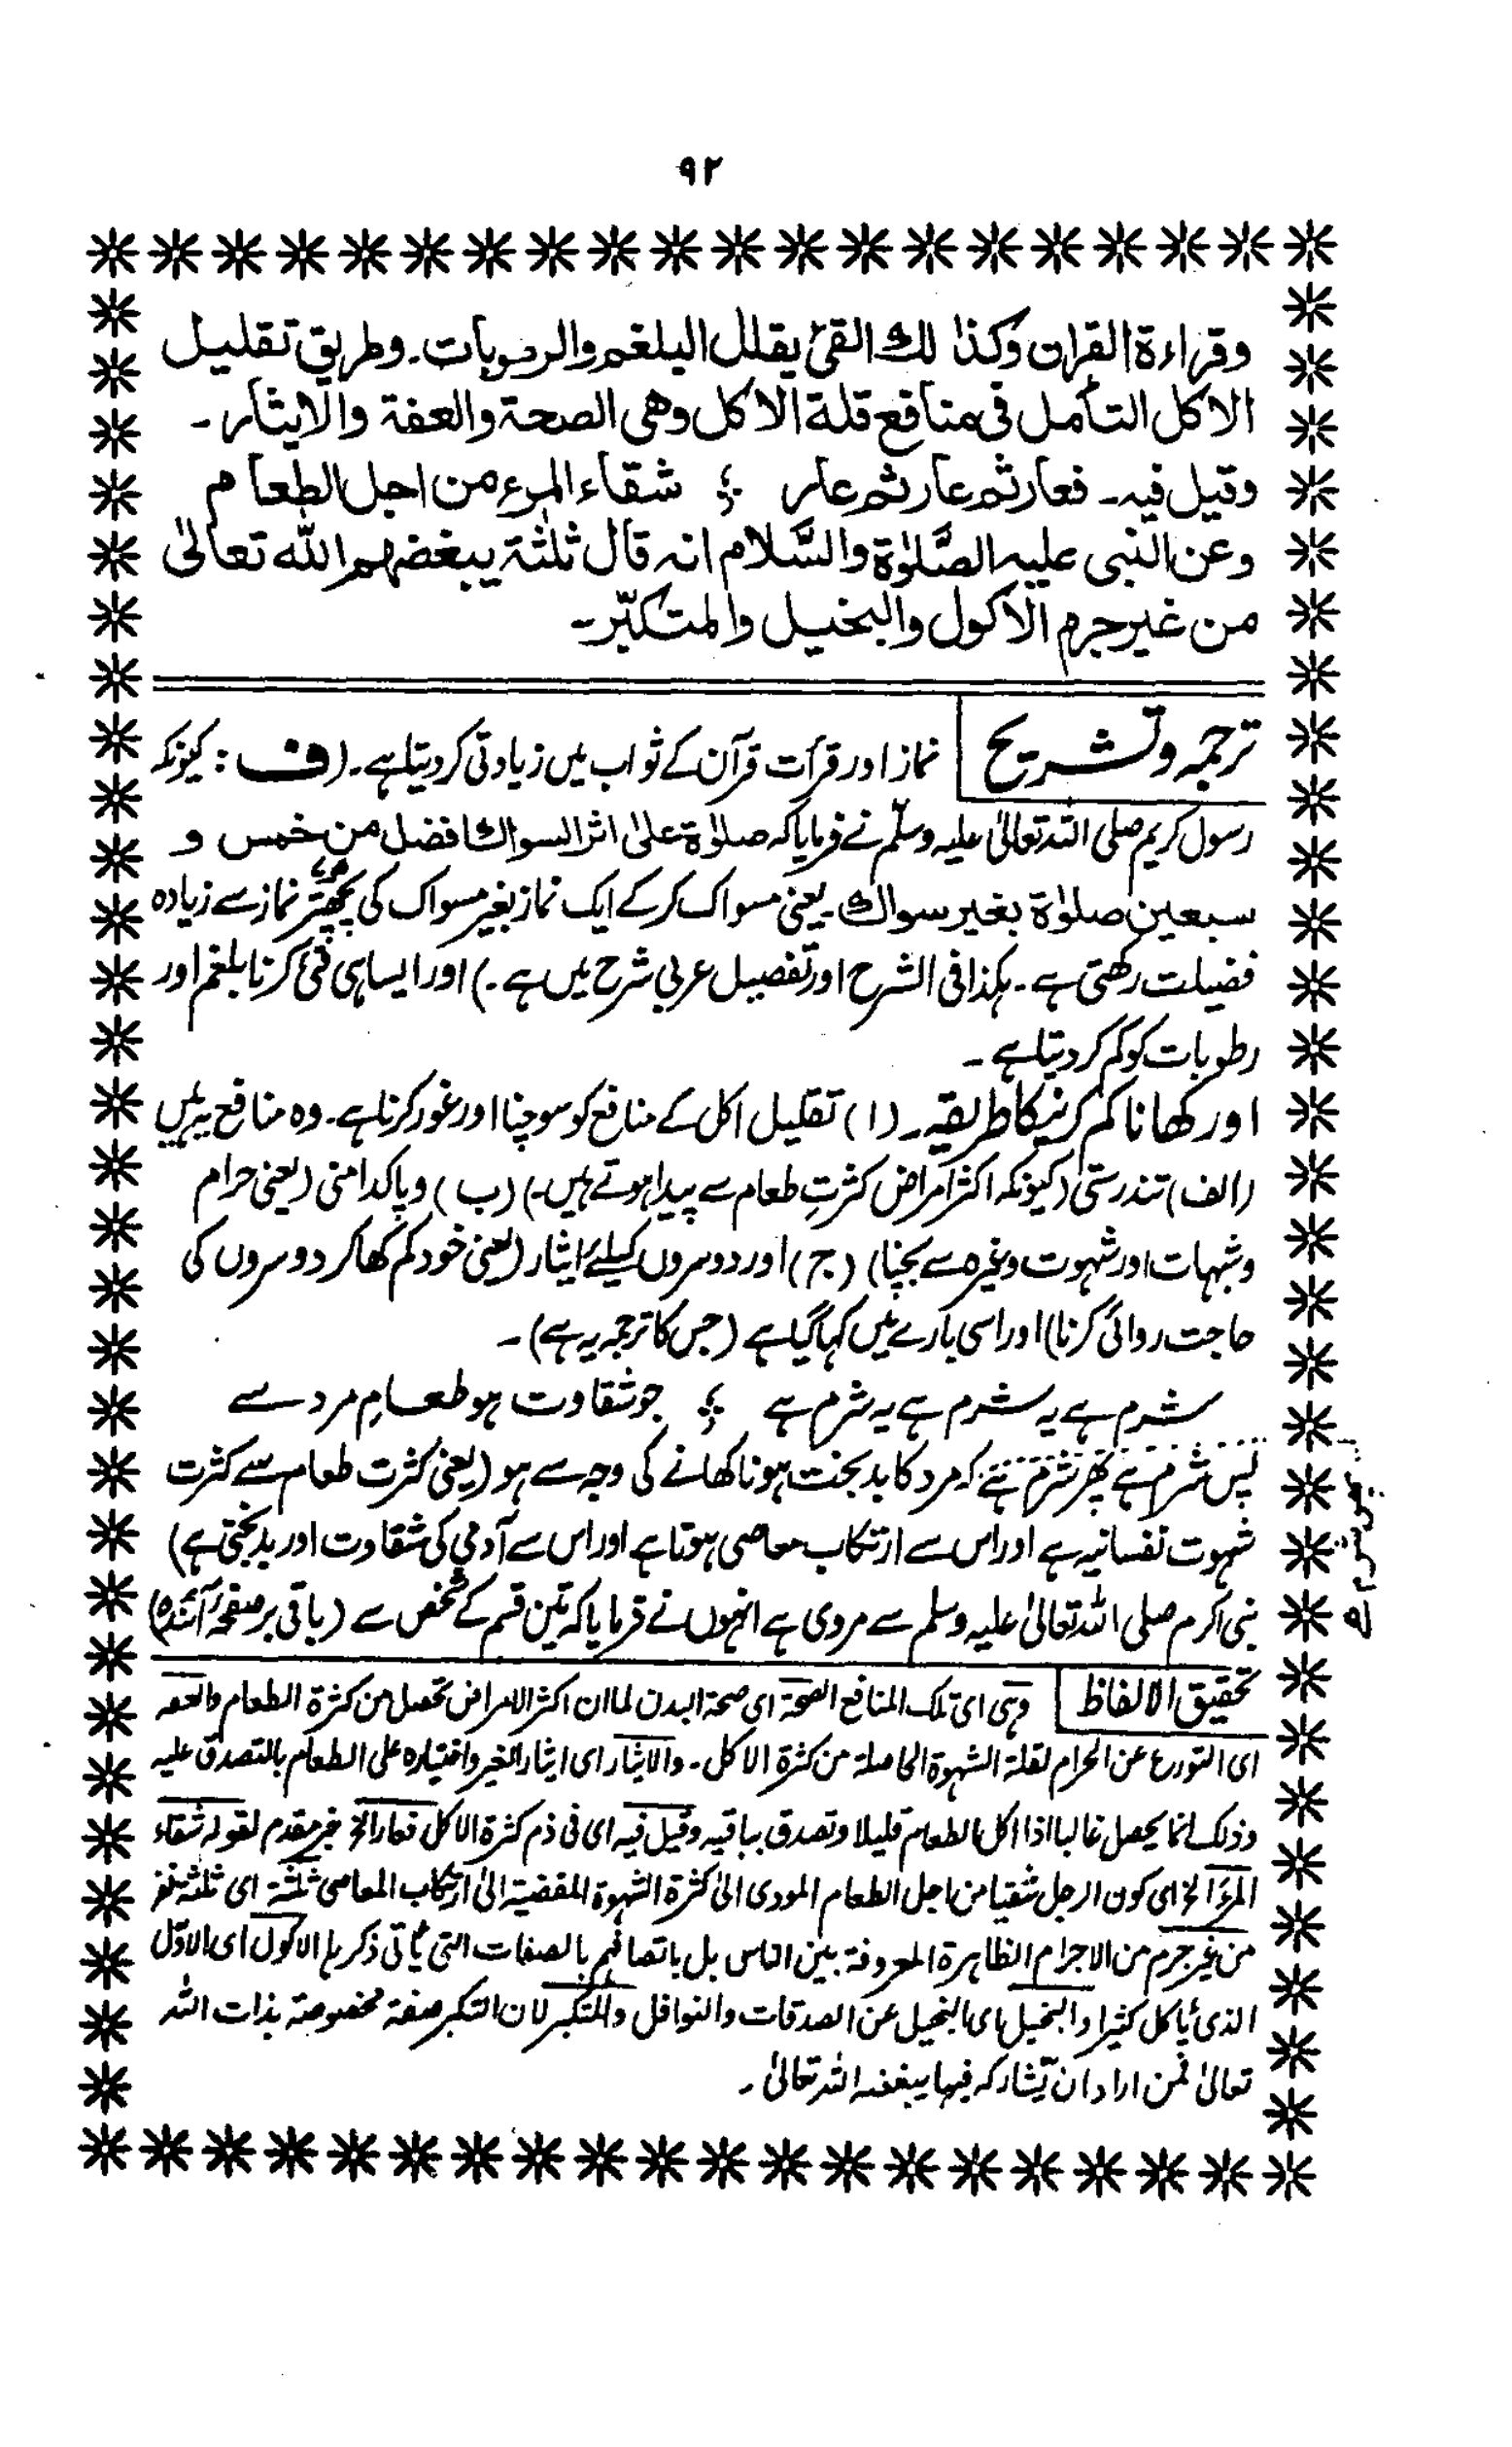 ٩٢
وقراءة القران وكذا لك القئ يقلل البلغم والرطوبات۔ وطريق تقليل
الاكل التأمل فى منافع قلة الاكل وهى الصحة والعفة والايثار۔
وقيل فيه۔ فعار ثم عار ثم عار ؛ شقاء المرء من اجل الطعام
وعن النبى عليه الصَّلوٰة والسَّلام انه قال ثلٰثة يبغضهم الله تعالىٰ
من غير جرم الاكول والبخيل والمتكبّر۔
ترجمہ وتشریح
نماز اور قرآت قرآن کے ثواب میں زیادتی کر دیتا ہے۔ (ف: کیونکہ
رسول کریم صلی اللہ تعالیٰ علیہ وسلّم نے فرمایا کہ صلوٰة علىٰ اثر السواك افضل من خمس و
سبعين صلوٰة بغير سواك۔ یعنی مسواک کرکے ایک نماز بغیر مسواک کی پچھتر نماز سے زیادہ
فضیلت رکھتی ہے۔ ہکذا فی الشرح اور تفصیل عربی شرح میں ہے۔) اور ایسا ہی قئ کرنا بلغم اور
رطوبات کو کم کر دیتا ہے۔
اور کھانا کم کرنیکا طریقہ۔ (۱) تقلیل اکل کے منافع کو سوچنا اور غور کرنا ہے۔ وہ منافع یہ ہیں
(الف) تندرستی (کیونکہ اکثر امراض کثرتِ طعام سے پیدا ہوتے ہیں۔) (ب) وپاکدامنی (یعنی حرام
وشبہات اور شہوت وغیرہ سے بچنا) (ج) اور دوسروں کیلئے ایثار (یعنی خود کم کھاکر دوسروں کی
حاجت روائی کرنا) اور اسی بارے میں کہا گیا ہے (جس کا ترجمہ یہ ہے)۔
شرم ہے یہ شرم ہے یہ شرم ہے ؛ جو شقاوت ہو طعامِ مرد سے
پس شرم ہے پھر شرم ہے کہ مرد کا بدبخت ہونا کھانے کی وجہ سے ہو (یعنی کثرت طعام سے کثرت
شہوت نفسانیہ ہے اور اس سے ارتکاب معاصی ہوتا ہے اور اس سے آدمی کی شقاوت اور بدبختی ہے)
نبی اکرم صلی اللہ تعالیٰ علیہ وسلم سے مروی ہے انہوں نے فرمایا کہ تین قسم کے شخص سے (باقی بر صفحہ آئندہ)
تحقیق الالفاظ
وہی ای تلک المنافع الصحۃ ای صحۃ البدن لما ان اکثر الامراض تحصل من کثرۃ الطعام والعفہ
ای التورع عن الحرام لقلۃ الشہوۃ الحاصلۃ من کثرۃ الاکل۔ والایثار ای ایثار الغیر واختیارہ علی الطعام بالتصدق علیہ
وذلک انما یحصل غالبا اذا اکل الطعام قلیلا وتصدق بباقیہ وقیل فیہ ای فی ذم کثرۃ الاکل فعار الخ خبر مقدم لقولہ شقاء
المرء الخ ای کون الرجل شقیا من اجل الطعام المودی الیٰ کثرۃ الشہوۃ المفضیۃ الیٰ ارتکاب المعاصی ثلٰثۃ ای ثلٰثۃ نفر
من غیر جرم من الاجرام الظاہرۃ المعروفۃ بین الناس بل باتصافہم بالصفات التی یأتی ذکرہا الاکول ای الاوّل
الذی یأکل کثیرا والبخیل ای البخیل عن الصدقات والنوافل والمتکبر لان التکبر صفۃ مخصوصۃ بذات اللہ
تعالیٰ فمن اراد ان یشارکہ فیہا یبغضہ اللہ تعالیٰ۔